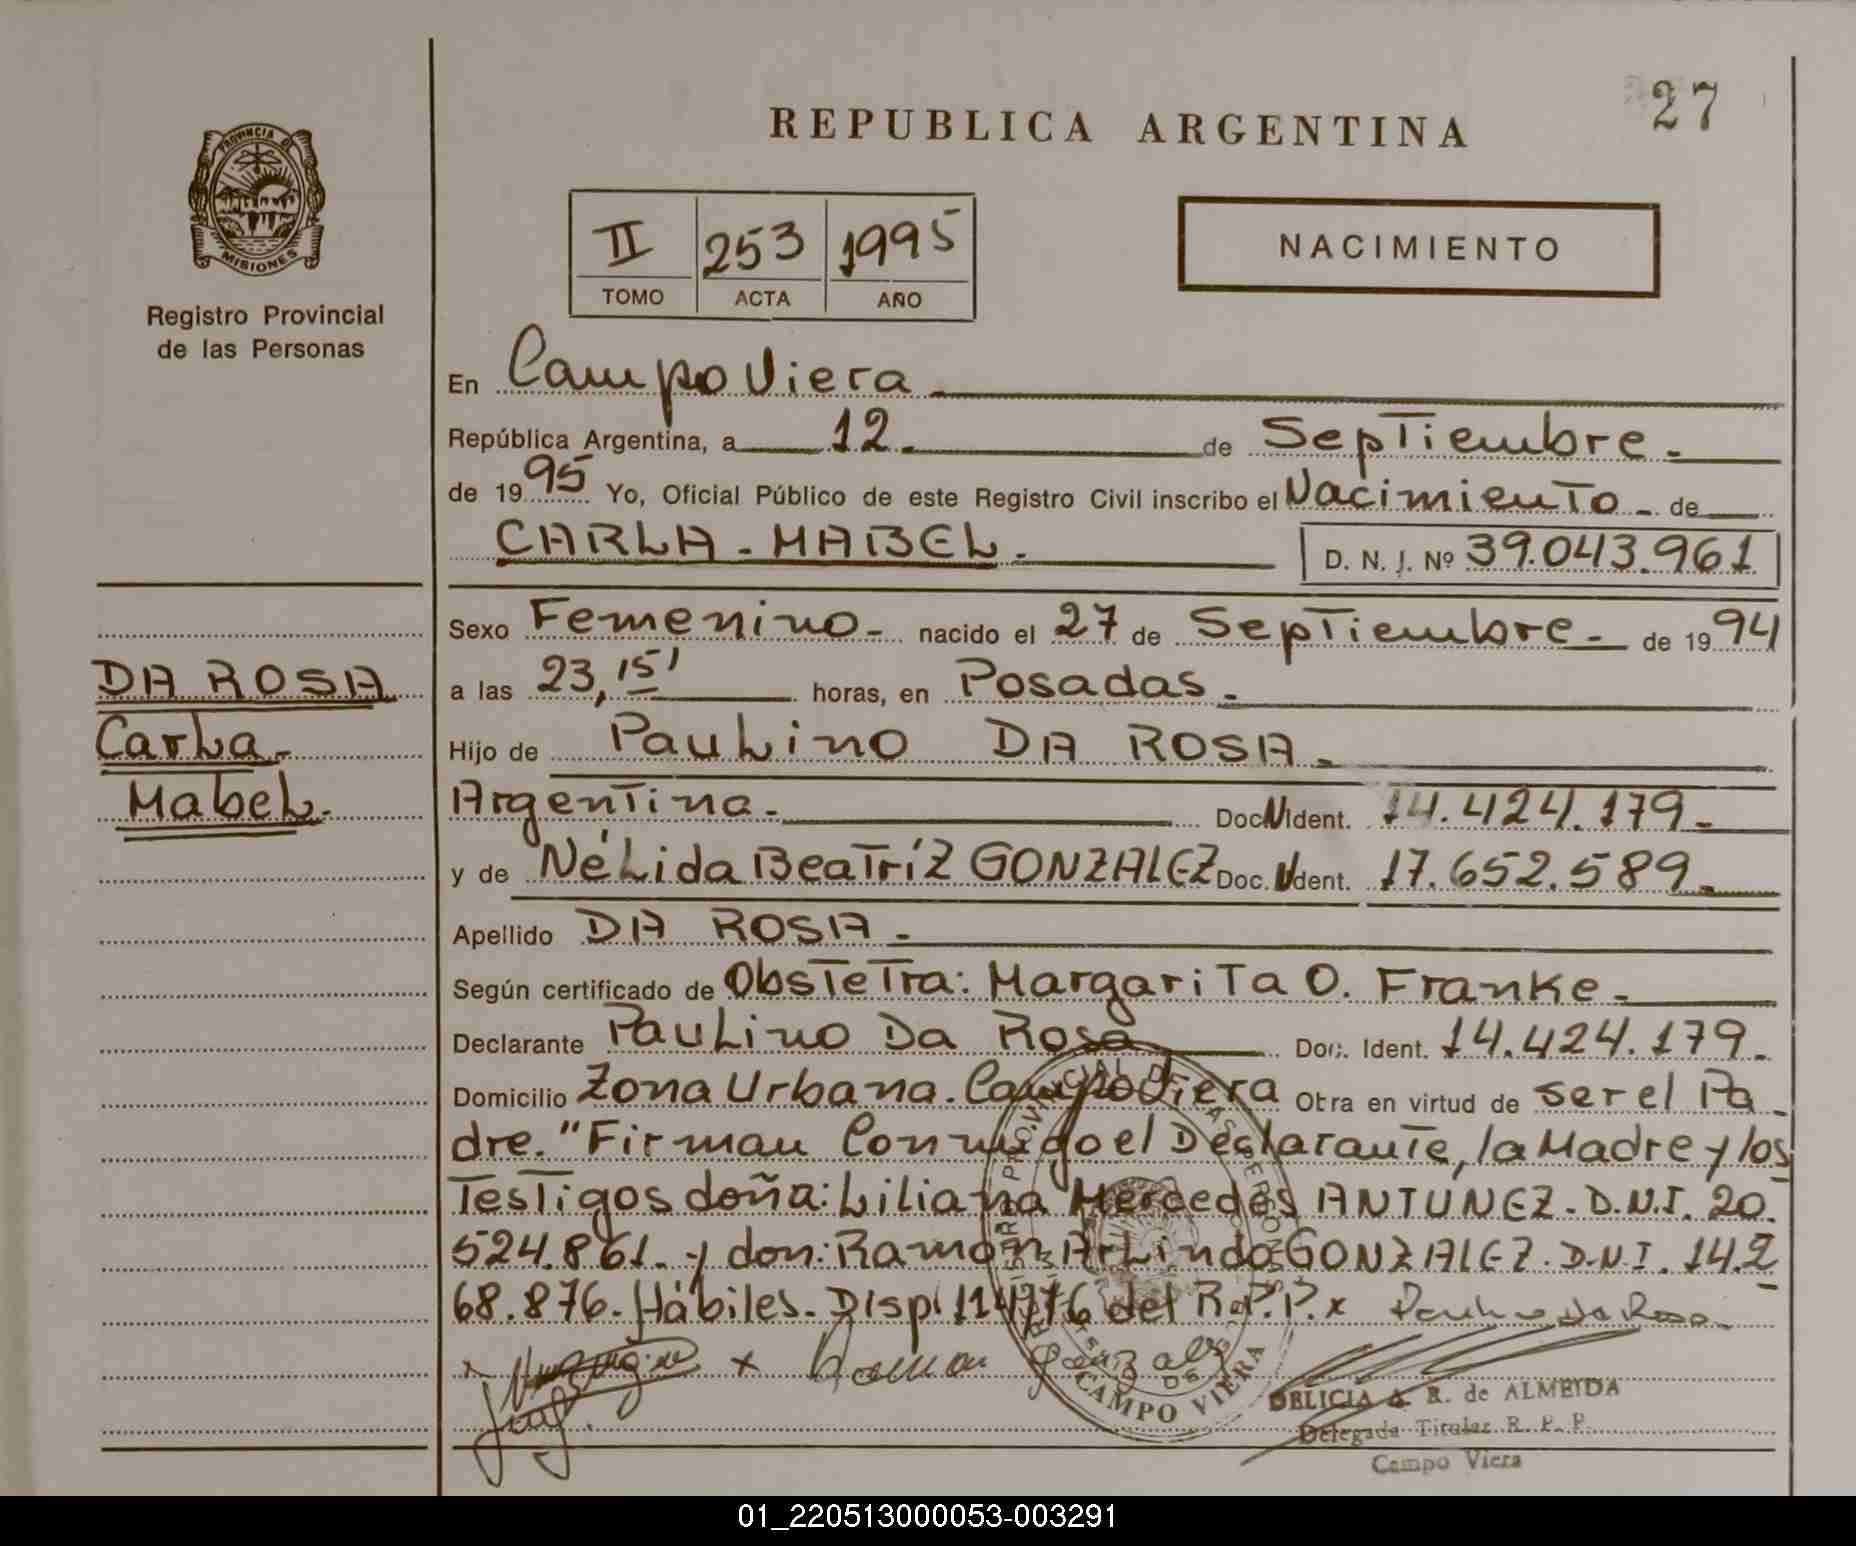 27
REPUBLICA ARGENTINA
PROVINCIA DE
MISIONES
Registro Provincial
de las Personas
II 253 1995
TOMO ACTA AÑO
NACIMIENTO
En Campo Viera
República Argentina, a 12 de Septiembre
de 1995 Yo, Oficial Público de este Registro Civil inscribo el Nacimiento de
CARLA MABEL D. N. I. Nº 39.043.961
Sexo Femenino nacido el 27 de Septiembre de 1994
DA ROSA
Carla
Mabel
a las 23,15' horas, en Posadas
Hijo de Paulino DA ROSA
Argentina Doc. Ident. 14.424.179
y de Nélida Beatríz GONZALEZ Doc. Ident. 17.652.589
Apellido DA ROSA
Según certificado de Obstetra: Margarita O. Franke
Declarante Paulino Da Rosa Doc. Ident. 14.424.179
Domicilio Zona Urbana. Campo Viera Obra en virtud de ser el Pa
dre. "Firman Conmigo el Declarante, la Madre y los
Testigos doña: Liliana Mercedes ANTUNEZ. D.N.I. 20.
524.861. y don: Ramón Arlindo GONZALEZ. D.N.I. 14.2
68.876. Hábiles. Disp. 114/76 del R.P.P. x Paulino Da Rosa
x Ramon Gonzales
CAMPO VIERA
DELICIA A. R. de ALMEIDA
Delegada Titular R. P. P.
Campo Viera
01_220513000053-003291